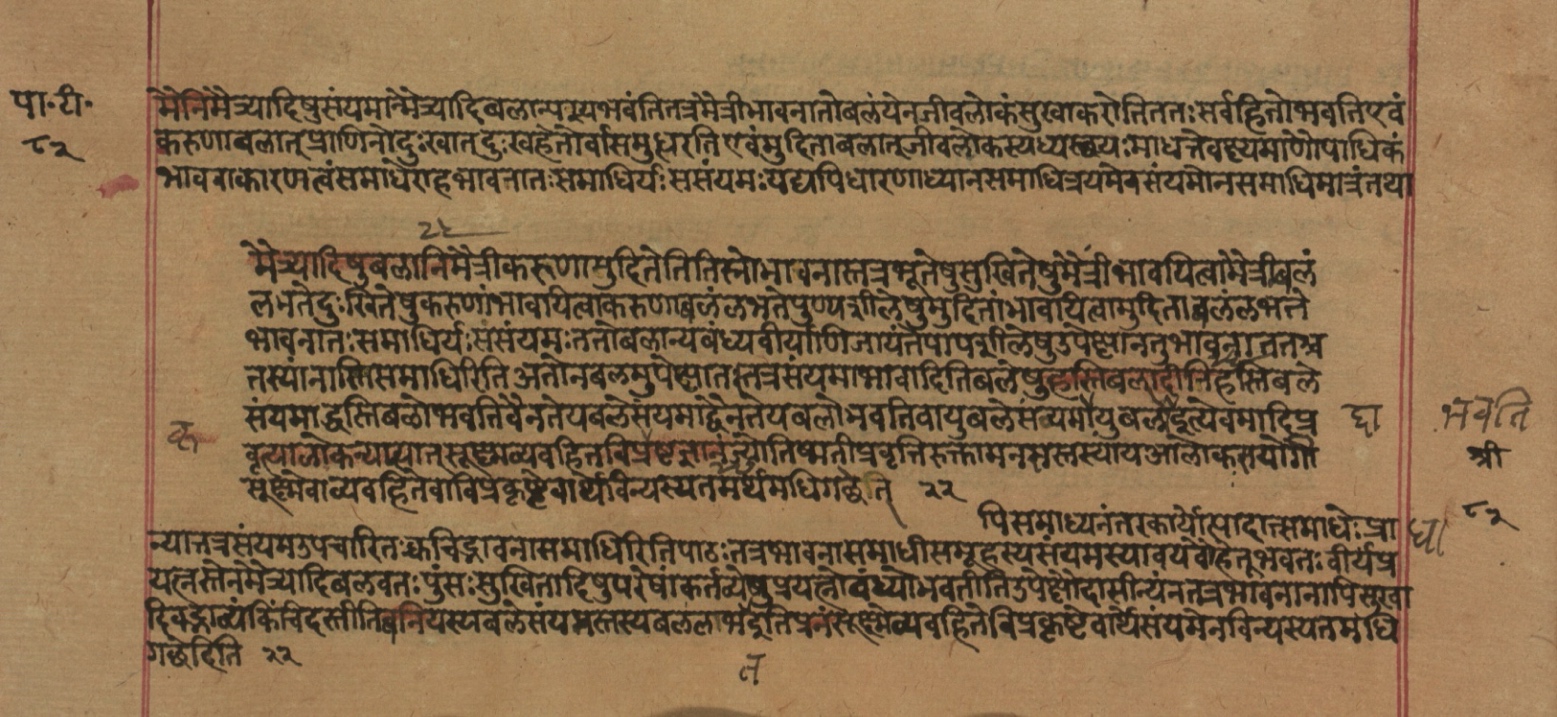 पा॰टी॰
८२
मेनिमैत्र्यादिषुसंयमान्मैत्र्यादिबलान्यस्यभवंतितत्रमैत्रीभावनातोबलंयेनजीवलोकंसुखाकरोतिततःसर्वहितोभवतिएवं
करुणाबलात्प्राणिनोदुःखात्दुःखहेतोर्वासमुद्धरतिएवंमुदिताबलात्जीवलोकस्यध्यस्छयःमाधत्तेवक्ष्यमाणोपाधिकं
भावनाकारणत्वंसमाधेराहभावनातःसमाधिर्यःससंयमःयद्यपिधारणाध्यानसमाधित्रयमेवसंयमोनसमाधिमात्रंतथा
२२
मैत्र्यादिषुबलानिमैत्रीकरूणामुदितेतितिस्रोभावनास्तत्रभूतेषुसुखितेषुमैत्रींभावयित्वामैत्रीबलं
लभतेदुःखितेषुकरुणांभावयित्वाकरुणाबलंलभतेपुण्यशीलेषुमुदितांभावयित्वामुदिताबलंलभते
भावनातःसमाधिर्यःससंयमःततोबलान्यबंध्यवीर्याणिजायंतेपापशीलेषुउपेक्षानतुभावनाततश्च
तस्यांनास्तिसमाधिरितिअतोनबलमुपेक्षातस्तत्रसंयमाभावादितिबलेषुहस्तिबलादीनिहस्तिबले
संयमाद्धस्तिबलोभवतिवैनतेयबलेसंयमाद्वैनतेयबलोभवतिवायुबलेसंयमायुबलइत्येवमादिप्र
द्वा
भवति
वृत्यालोकन्यासात्सूक्ष्मव्यवहितविप्रकृष्टज्ञानंज्योतिष्मतीप्रवृत्तिरुक्तामनसस्तस्यांयआलोकस्तंयोगी
कृ
श्री
सूक्ष्मेवाव्यवहितेवाविप्रकृष्टेवार्थेविन्यस्यतमर्थमधिगछति २२
८२
पिसमाध्यनंतरकार्योत्पादात्समाधेःप्रा
धा
न्यात्तत्रसंयमउपचारितःक्वचिद्भावनासमाधिरितिपाठःतत्रभावनासमाधीसमूहस्यसंयमस्यावयवौहेतूभवतःवीर्यप्र
यत्नस्तेनमैत्र्यादिबलवतःपुंसःसुखितादिषुपरेषांकर्तव्येषुप्रयत्नोवंध्योभवतीतिउपेक्षौदासीन्यंनतत्रभावनानापिसुखा
दिवद्भाव्यंकिंचिदस्तीतिबनियस्यबलेसंयमस्तस्यबलंलाभइतिप्रनंसूक्ष्मेव्यवहितेविप्रकृष्टेवार्थेसंयमेनविन्यस्यतमधि
गछतीति २२
त